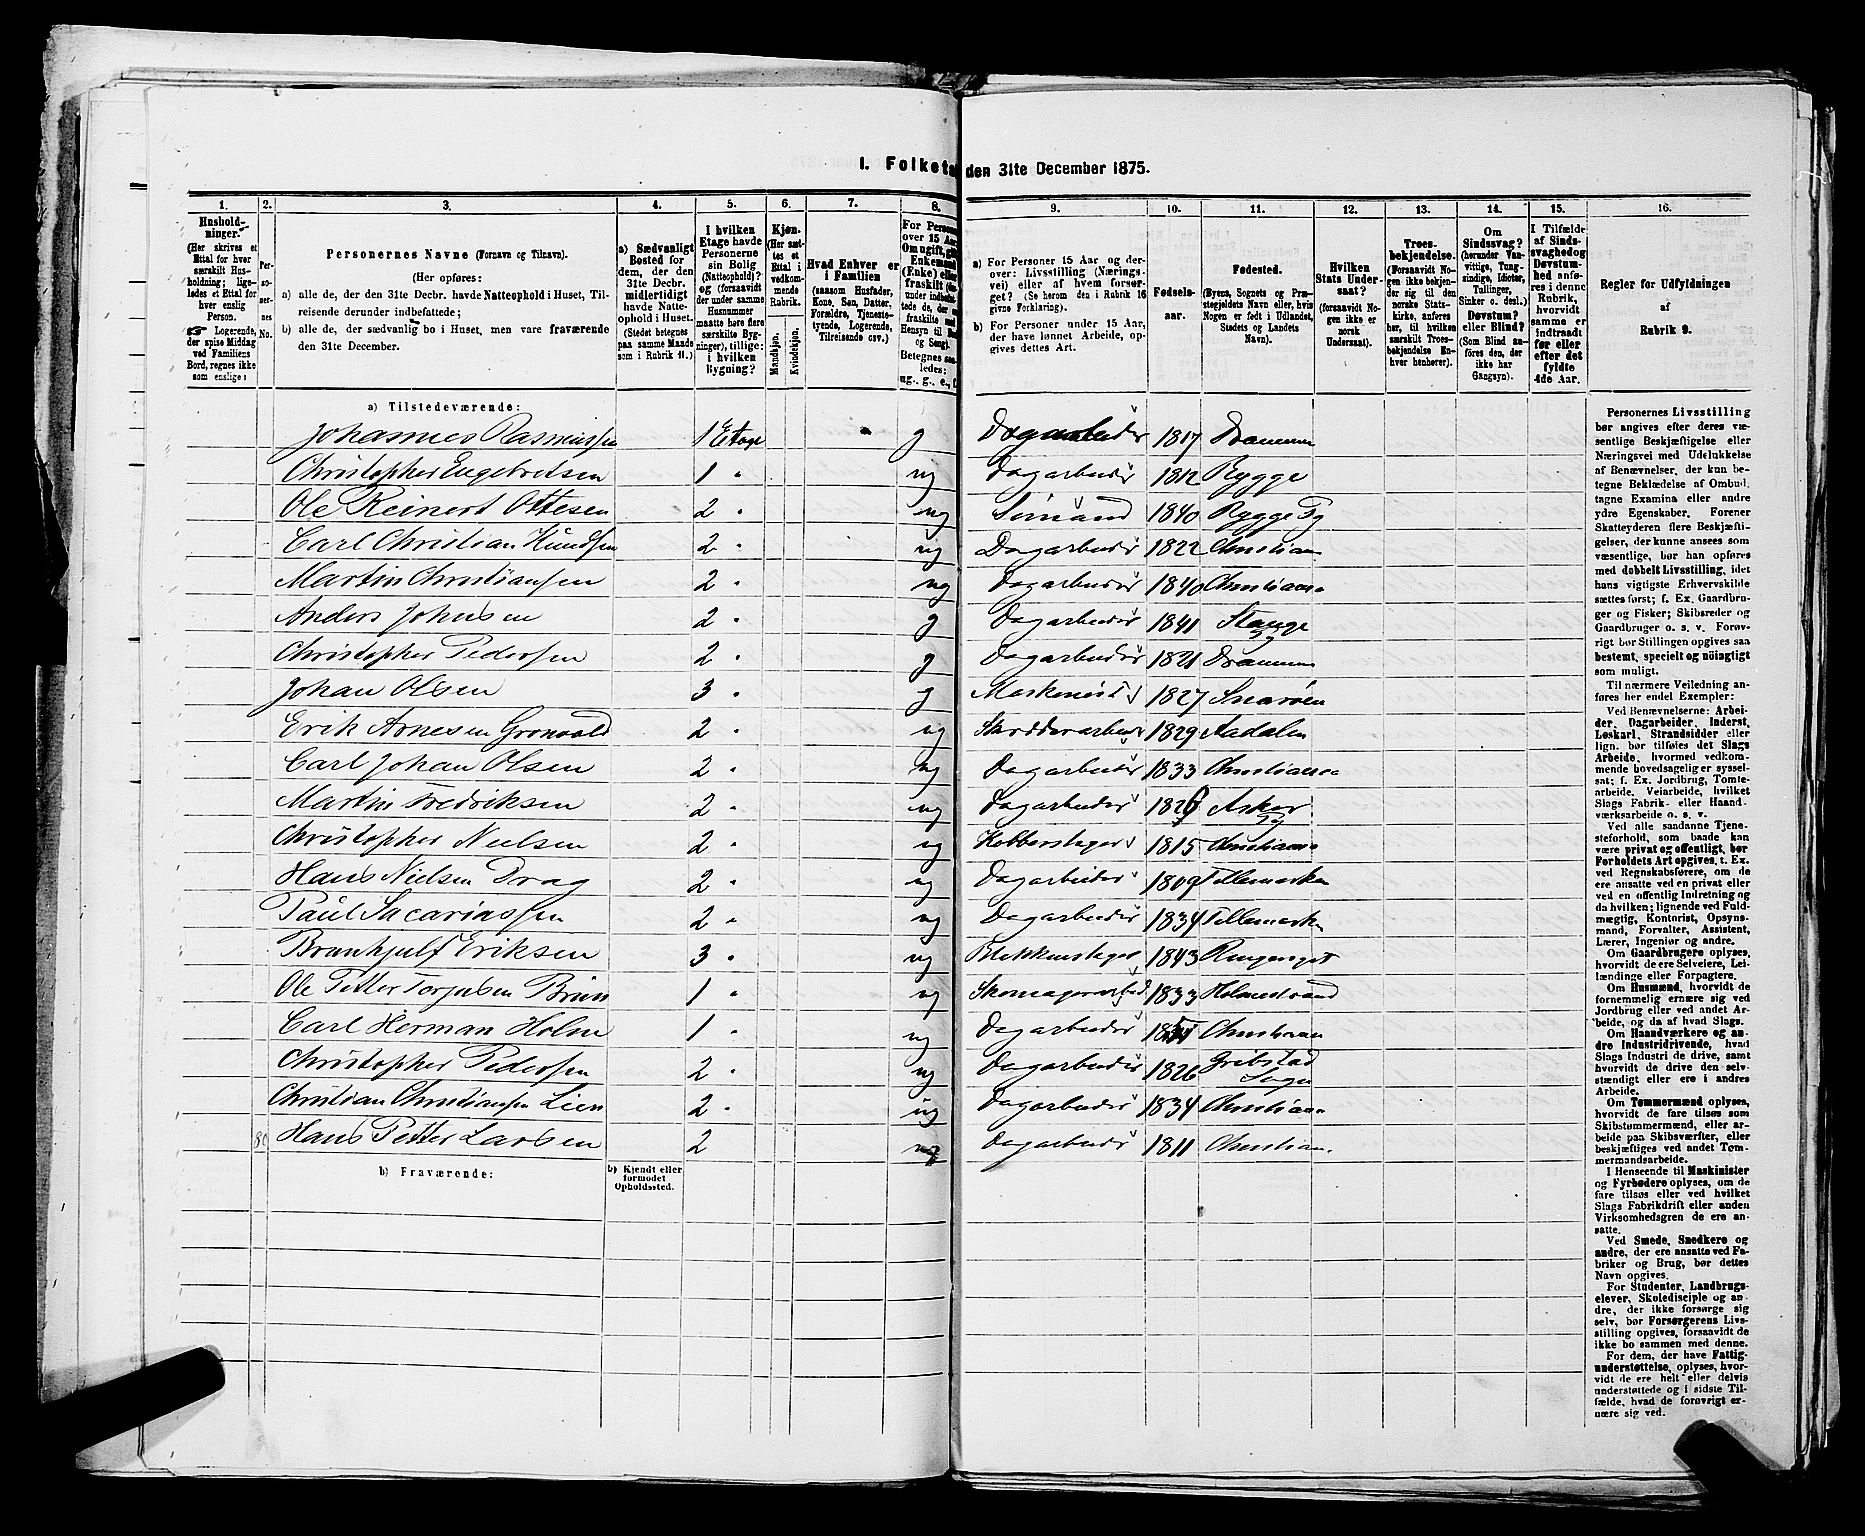 I. Folketa den 31te December 1875.
1. 2. 3. 4. 5. 6. 7. 8. 9. 10. 11. 12. 13. 14. 15. 16.
Hushold-
ninger.
(Her skrives et
Ettal for hver
særskilt Hus-
holdning; lige-
ledes et Ettal for
hver enslig
Person.
☞ Logerende,
der spise Middag
ved Familiens
Bord, regnes ikke
som enslige)
Per-
so-
ner-
nes
No.
Personernes Navne (Fornavn og Tilnavn).
(Her opføres:
a) alle de, der den 31te Decbr. havde Natteophold i Huset, Til-
reisende derunder indbefattede;
b) alle de, der sædvanlig bo i Huset, men vare fraværende
den 31te December.
a) Sædvanligt
Bosted for
dem, der den
31te Decbr.
midlertidigt
havde Natte-
ophold i Huset.
(Stedet betegnes
paa samme Maade
som i Rubrik 11.)
I hvilken
Etage havde
Personerne
sin Bolig
(Natteophold)?
og (forsaavidt
der under samme
Husnummer
maatte høre flere
særskilte Byg-
ninger), tillige:
i hvilken
Bygning?
Kjøn.
(Her sæt-
tes et
Ettal i
vedkom-
mende
Rubrik.
Mandkjøn.
Kvindekjøn.
Hvad Enhver er
i Familien
(saasom Husfader,
Kone, Søn, Datter,
Forældre, Tjeneste-
tyende, Logerende,
Tilreisende osv.)
For Person
over 15 Aar
Om ugift, gift
Enkemand
(Enke) eller
fraskilt
Betegnes saa-
ledes:
ug., g., e., f.
a) For Personer 15 Aar og der-
over: Livsstilling (Nærings-
vei) eller af hvem forsør-
get? (Se herom den i Rubrik 16
givne Forklaring).
b) For Personer under 15 Aar,
der have lønnet Arbeide, op-
gives dettes Art.
Fødsels-
aar.
Fødested.
(Byens, Sognets og Præ-
stegjeldets Navn eller, hvis
Nogen er født i Udlandet,
Stedets og Landets
Navn).
Hvilken
Stats Under-
saat?
(forsaavidt No-
gen ikke er
norsk
Undersaat).
Troes-
bekjendelse.
(Forsaavidt No-
gen ikke bekjen-
der sig til den
norske Stats-
kirke, anføres
her, til hvilken
særskilt Troes-
bekjendelse En-
hver henhører).
Om
Sindssvag?
(herunder Van-
vittige, Tung-
sindige, Idioter,
Tullinger,
Sinker o. desl.)
Døvstum?
eller Blind?
(Som Blind an-
føres den, der
ikke har
Gangsyn).
I Tilfælde
af Sinds-
svaghed og
Døvstum-
hed anfø-
res i denne
Rubrik,
hvorvidt
samme er
indtraadt
før eller
efter det
fyldte
4de Aar.
Regler for Udfyldningen
af
Rubrik 9.
a) Tilstedeværende:
Johannes Rasmussen 1 Etage g Dagarbeider 1817 Drammen
Christopher Engebretsen 1 " ug Dagarbeider 1812 Rygge
Ole Reinert Ottesen 2 " ug Sømand 1840 Rygge Pg
Carl Christian Knudsen 2 " ug Dagarbeider 1822 Christian
Martin Christiansen 2 " ug Dagarbeider 1840 Christiania
Anders Johnsen 2 " g Dagarbeider 1841 Stange Pg
Christopher Pedersen 2 " g Dagarbeider 1821 Drammen
Johan Olsen 3 " g Maskenist 1827 Snarøen
Erik Arnesen Gronvold 2 " ug Skrædderarbeid 1829 Aadalen
Carl Johan Olsen 2 " ug Dagarbeider 1833 Christiania
Martin Fredriksen 2 " ug Dagarbeider Asker Pg
Christopher Nielsen 2 " ug Kobberslager 1815 Christiania
Hans Nielsen Drag 2 " ug Dagarbeider 1809 Tellemarken
Paul Sacariassen 2 " ug Dagarbeider 1834 Tellemarken
Eriksen 3 " ug Blikkenslager 1843 Ringeriget
Ole Petter Torjusen Bruun 1 " ug Skomagerarbeid 1833 Holmestrand
Carl Herman Holm 1 " ug Dagarbeider Christiania
Christopher Pedersen 2 " ug Dagarbeider 1826 Sogn
Christian Christiansen Lien 2 " ug Dagarbeider 1834 Christiania
80 Hans Petter Larsen 2 ug Dagarbeider 1811 Christian.
b) Fraværende:
b) Kjendt eller
formodet
Opholdssted.
Personernes Livsstilling
bør angives efter deres væ-
sentlige Beskjæftigelse eller
Næringsvei med Udelukkelse
af Benævnelser, der kun be-
tegne Beklædelse af Ombud,
tagne Examina eller andre
ydre Egenskaber. Forener
Skatteyderen flere Beskjæfti-
gelser, der kunne ansees som
væsentlige, bør han opføres
med dobbelt Livsstilling, idet
hans vigtigste Erhvervskilde
sættes først; f. Ex. Gaardbru-
ger og Fisker; Skibsreder og
Gaardbruger o. s. v. Forøv-
rigt bør Stillingen opgives saa
bestemt, specielt og nöiagtigt
som muligt.
Til nærmere Veiledning an-
føres her endel Exempler:
Ved Benævnelserne: Arbei-
der, Dagarbeider, Inderst,
Løskarl, Strandsidder eller
lign. bør tilføies det Slags
Arbeide, hvormed vedkom-
mende hovedsagelig er syssel-
sat; f. Ex. Jordbrug, Tomte-
arbeide, Veiarbeide, hvilket
Slags Fabrik- eller Haand-
værksarbeide o. s. v.
Ved alle saadanne Tjene-
steforhold, som baade kan
være privat og offentligt, bør
Forholdets Art opgives, t. Ex.
ved Regnskabsførere, om de
ere ansatte ved en privat eller
ved en offentlig Indretning og
da hvilken; lignende ved Fuld-
mægtig, Kontorist, Opsyns-
mand, Forvalter, Assistent,
Lærer, Ingeniør og andre.
Om Gaardbrugere oplyses,
hvorvidt de ere Selveiere, Lei-
lændinge eller Forpagtere.
Om Husmænd, hvorvidt de
fornemmelig ernære sig ved
Jordbrug eller ved andet Ar-
beide, og da af hvad Slags.
Om Haandværkere og an-
dre Industridrivende, hvad
Slags Industri de drive, samt
hvorvidt de drive den selv-
stændigt eller ere i andres
Arbeide.
Om Tømmermænd oplyses,
hvorvidt de fare tilsøs som
Skibstømmermænd, eller ar-
beide paa Skibsværfter, eller
beskjæftiges ved andet Tøm-
mermandsarbeide.
I Henseende til Maskinister
og Fyrbødere oplyses, om de
fare tilsøs eller ved hvilket
Slags Fabrikdrift eller anden
Virksomhedsgren de ere an-
satte.
Ved Smede, Snedkere og
andre, der ere ansatte ved Fa-
briker og Brug, bør dettes
Navn opgives.
For Studenter, Landbrugs-
elever, Skoledisciple og an-
dre, der ikke forsørge sig
selv, bør Forsørgerens Livs-
stilling opgives, forsaavidt de
ikke bo sammen med denne.
For dem, der have Fattig-
understøttelse, oplyses, hvor-
vidt de ere helt eller delvis
understøttede og i sidste Til-
fælde, hvad de forøvrigt er-
nære sig ved.